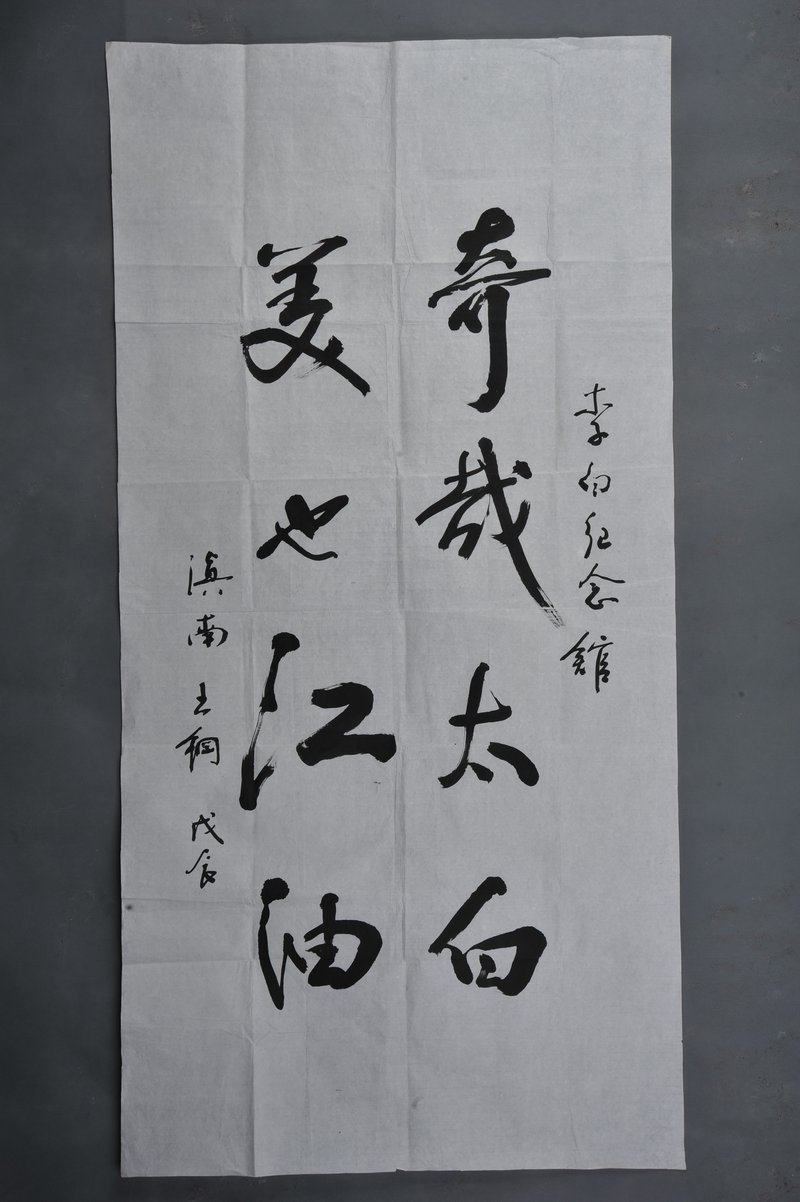 李白纪念館
奇哉太白
美也江油
滇南王钢戊辰